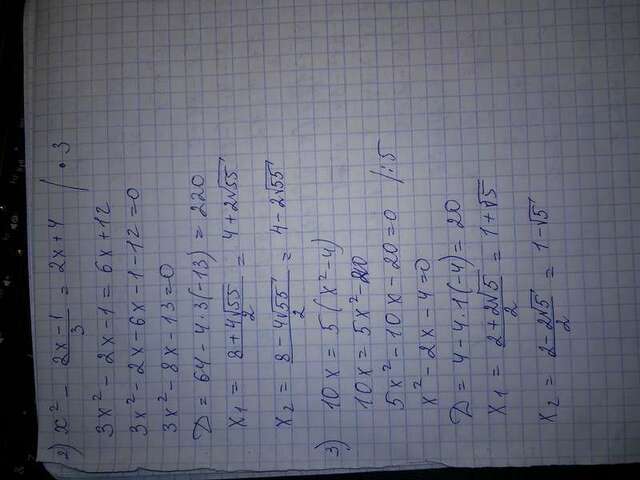 2) x² - (2x-1)/3 = 2x+4 / · 3
3x² - 2x - 1 = 6x + 12
3x² - 2x - 6x - 1 - 12 = 0
3x² - 8x - 13 = 0
D = 64 - 4·3(-13) = 220
x₁ = (8+4√55)/2 = 4+2√55
x₂ = (8-4√55)/2 = 4-2√55
3) 10x = 5(x²-4)
10x = 5x² - 20
5x² - 10x - 20 = 0 /:5
x² - 2x - 4 = 0
D = 4 - 4·1(-4) = 20
x₁ = (2+2√5)/2 = 1+√5
x₂ = (2-2√5)/2 = 1-√5